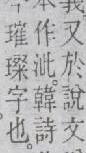 義又於說文
本作泚韓詩
璀璨字也